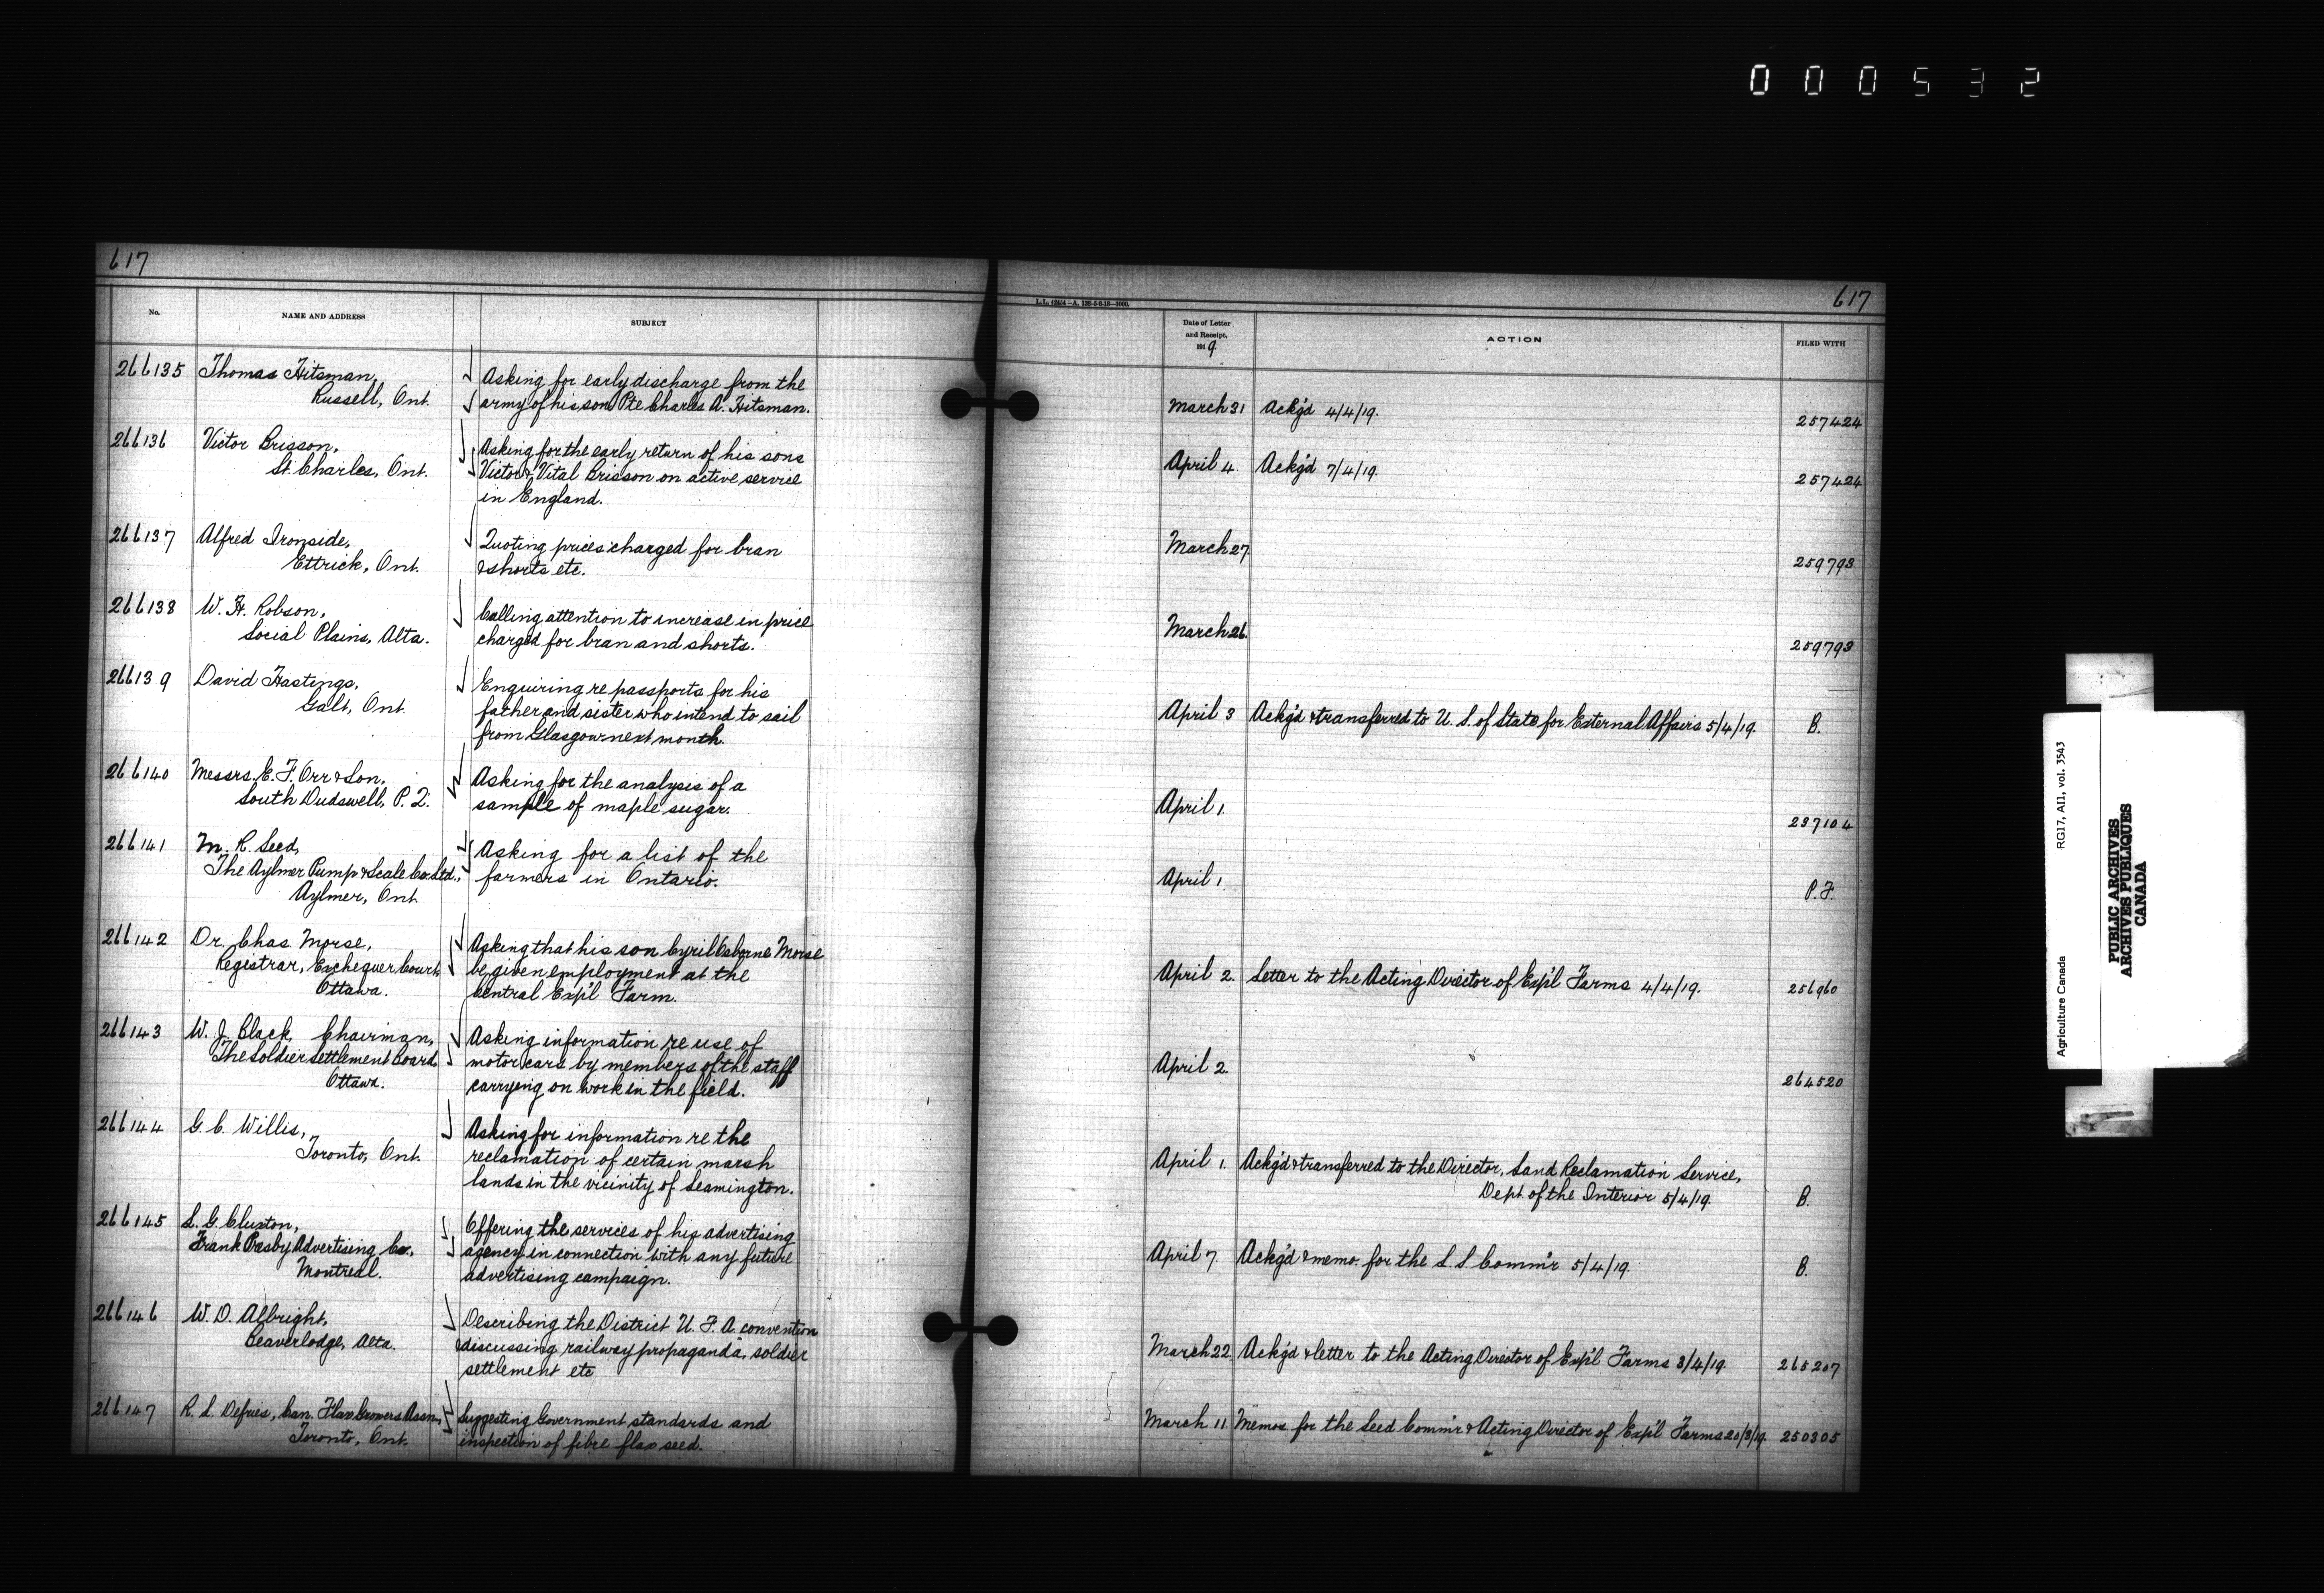 000532
617
No.
NAME AND ADDRESS
SUBJECT
266135 Thomas Hitsman, Asking for early discharge from the
Russell, Ont. army of his son Pte Charles A. Hitsman.
266136 Victor Brisson, Asking for the early return of his sons
St. Charles, Ont. Victor & Vital Brisson on active service
in England.
266137 Alfred Ironside, Quoting prices charged for bran
Ettrick, Ont. & shorts etc.
266138 W. H. Robson, Calling attention to increase in price
Social Plains, Alta. charged for bran and shorts.
266139 David Hastings, Enquiring re passports for his
Galt, Ont. father and sister who intend to sail
from Glasgow next month.
266140 Messrs. E. F. Orr & Son, Asking for the analysis of a
South Dudswell, P. Q. sample of maple sugar.
266141 M. R. Seed, Asking for a list of the
The Aylmer Pump & Scale Co. Ltd., farmers in Ontario.
Aylmer, Ont.
266142 Dr. Chas Morse, Asking that his son Cyril Osborne Morse
Registrar, Exchequer Court, be given employment at the
Ottawa. Central Exp'l Farm.
266143 W. J. Black, Chairman, Asking information re use of
The Soldier Settlement Board motor cars by members of the staff
Ottawa. carrying on work in the field.
266144 G. C. Willis, Asking for information re the
Toronto, Ont. reclamation of certain marsh
lands in the vicinity of Leamington.
266145 L. G. Cluxton, Offering the services of his advertising
Frank Advertising Co., agency in connection with any future
Montreal. advertising campaign.
266146 W. D. Albright, Describing the District U. F. A. convention
Beaverlodge, Alta. discussing railway propaganda, soldier
settlement etc
266147 R. L. Defries, Can. Flax Growers Assn, Suggesting Government standards and
Toronto, Ont. inspection of fibre flax seed.
617
Date of Letter
and Receipt,
1919.
ACTION
FILED WITH
March 31 Ack'g'd 4/4/19. 257424
April 4. Ack'g'd 7/4/19. 257424
March 27. 259793
March 26. 259793
April 3 Ack'g'd & transferred to U. S. of State for External Affairs 5/4/19. B.
April 1. 237104
April 1. P. F.
April 2. Letter to the Acting Director of Exp'l Farms 4/4/19. 256960
April 2. 264520
April 1. Ack'g'd & transferred to the Director, Land Reclamation Service,
Dept. of the Interior 5/4/19. B.
April 7 Ack'g'd & memo. for the L. S. Comm'r 5/4/19. B.
March 22 Ack'g'd & letter to the Acting Director of Exp'l Farms 3/4/19. 265207
March 11 Memos for the Seed Comm'r & Acting Director of Exp'l Farms 20/3/19. 250305
Agriculture Canada RG17, A11, vol. 3543
PUBLIC ARCHIVES
ARCHIVES PUBLIQUES
CANADA